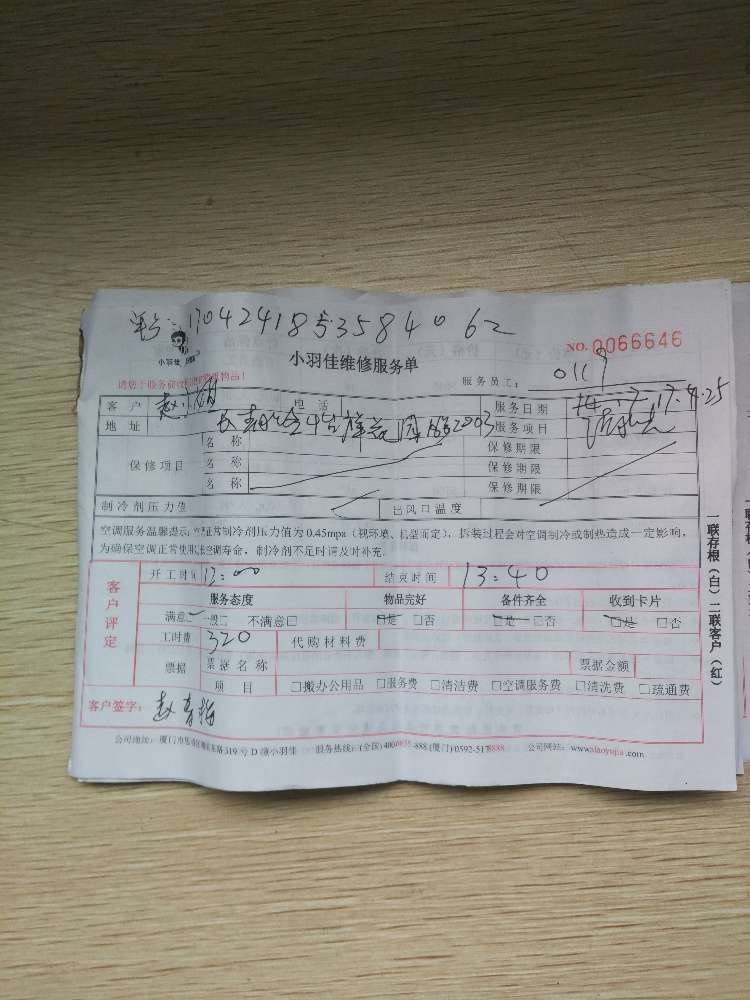 单号:17042418535840 62
小羽佳
小羽佳维修服务单
NO. 0066646
服务员工: 01119
客户 赵 电话 服务日期 17.4.25
地址 长青 服务项目
保修项目 名称 保修期限
名称 保修期限
名称 保修期限
制冷剂压力值 出风口温度
空调服务温馨提示:空调正常制冷剂压力值为0.45mpa(视环境、机型而定),拆装过程会对空调制冷或制热造成一定影响,
为确保空调正常使用及空调寿命,制冷剂不足时请及时补充。
客户评定
开工时间 12:00 结束时间 13:40
服务态度 物品完好 备件齐全 收到卡片
满意□ 一般□ 不满意□ □是 □否 □是 □否 □是 □否
工时费 320 代购材料费
票据 票据名称 票据金额
项目 □搬办公用品 □服务费 □清洁费 □空调服务费 □清洗费 □疏通费
客户签字: 赵
公司地址:厦门市 319号D 小羽佳 服务热线:(全国)400 -888 (厦门)0592-517 8888 公司网站:www.xiaoyujia.com
一联存根(白) 二联客户(红)